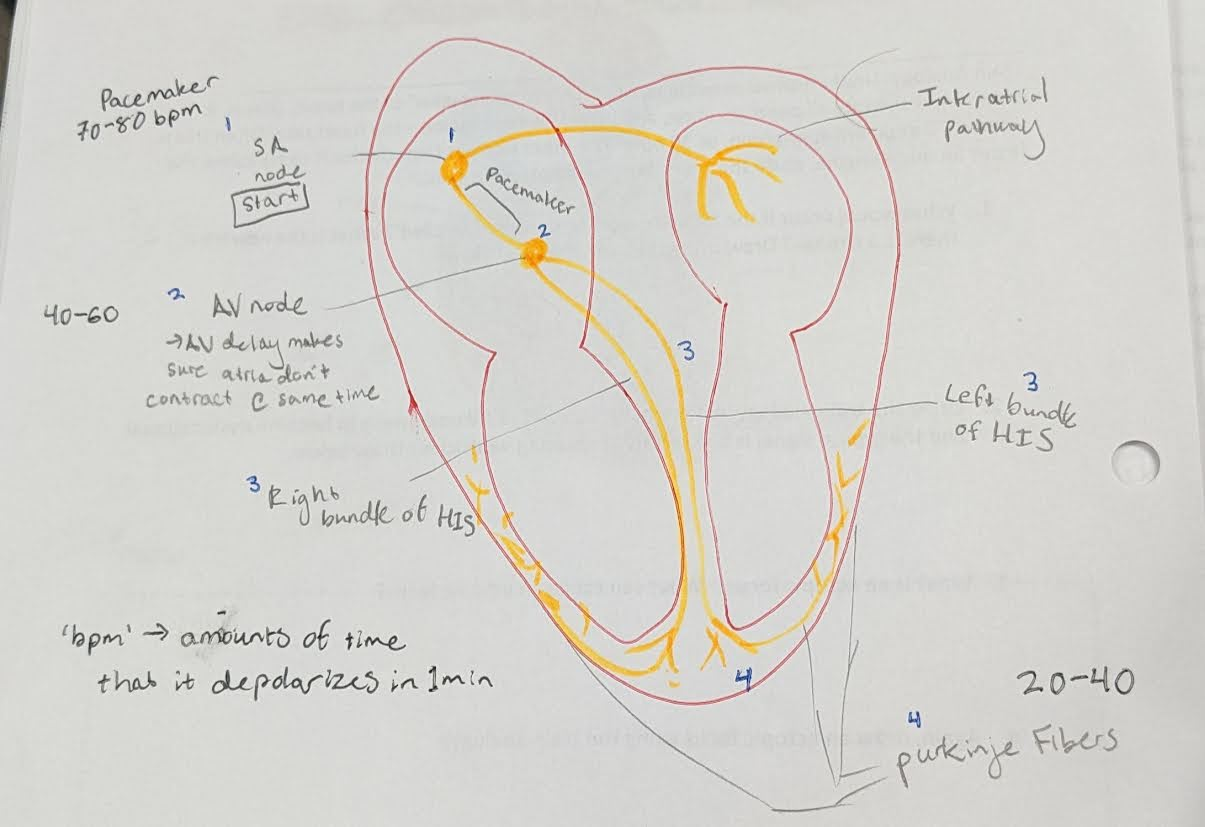 Pacemaker
70-80 bpm
1
SA
node
Start
1
Pacemaker
2
Interatrial
pathway
40-60
2 AV node
→AV delay makes
sure atria don't
contract C same time
3
3
Left bundle
of HIS
3 Right
bundle of HIS
'bpm' → amounts of time
that it depolarizes in 1min
4
20-40
4
purkinje Fibers